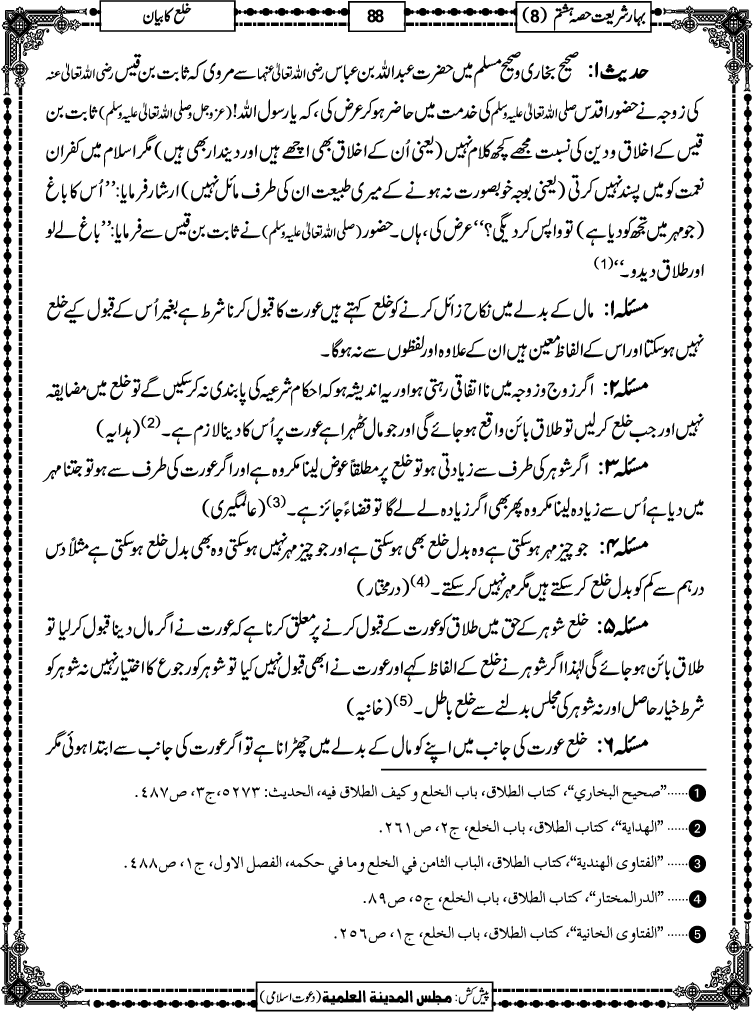 بہارِ شریعت حصہ ہشتم (8)
88
خلع کا بیان
حدیث ۱: صحیح بخاری و صحیح مسلم میں حضرت عبداللہ بن عباس رضی اللہ تعالیٰ عنہما سے مروی کہ ثابت بن قیس رضی اللہ تعالیٰ عنہ
کی زوجہ نے حضور اقدس صلی اللہ تعالیٰ علیہ وسلم کی خدمت میں حاضر ہو کر عرض کی، کہ یا رسول اللہ! (عزوجل و صلی اللہ تعالیٰ علیہ وسلم) ثابت بن
قیس کے اخلاق و دین کی نسبت مجھے کچھ کلام نہیں (یعنی اُن کے اخلاق بھی اچھے ہیں اور دیندار بھی ہیں) مگر اسلام میں کفران
نعمت کو میں پسند نہیں کرتی (یعنی بوجہ خوبصورت نہ ہونے کے میری طبیعت ان کی طرف مائل نہیں) ارشاد فرمایا: ’’اُس کا باغ
(جو مہر میں تجھ کو دیا ہے) تو واپس کر دیگی؟‘‘ عرض کی، ہاں۔ حضور (صلی اللہ تعالیٰ علیہ وسلم) نے ثابت بن قیس سے فرمایا: ’’باغ لے لو
اور طلاق دیدو۔‘‘ (1)
مسئلہ ۱: مال کے بدلے میں نکاح زائل کرنے کو خلع کہتے ہیں عورت کا قبول کرنا شرط ہے بغیر اُس کے قبول کیے خلع
نہیں ہو سکتا اور اس کے الفاظ معین ہیں ان کے علاوہ اور لفظوں سے نہ ہوگا۔
مسئلہ ۲: اگر زوج و زوجہ میں نا اتفاقی رہتی ہو اور یہ اندیشہ ہو کہ احکام شرعیہ کی پابندی نہ کر سکیں گے تو خلع میں مضایقہ
نہیں اور جب خلع کر لیں تو طلاق بائن واقع ہو جائے گی اور جو مال ٹھہرا ہے عورت پر اُس کا دینا لازم ہے۔ (2) (ہدایہ)
مسئلہ ۳: اگر شوہر کی طرف سے زیادتی ہو تو خلع پر مطلقاً عوض لینا مکروہ ہے اور اگر عورت کی طرف سے ہو تو جتنا مہر
میں دیا ہے اُس سے زیادہ لینا مکروہ پھر بھی اگر زیادہ لے لے گا تو قضاءً جائز ہے۔ (3) (عالمگیری)
مسئلہ ۴: جو چیز مہر ہو سکتی ہے وہ بدل خلع بھی ہو سکتی ہے اور جو چیز مہر نہیں ہو سکتی وہ بھی بدل خلع ہو سکتی ہے مثلاً دس
درہم سے کم کو بدل خلع کر سکتے ہیں مگر مہر نہیں کر سکتے۔ (4) (درمختار)
مسئلہ ۵: خلع شوہر کے حق میں طلاق کو عورت کے قبول کرنے پر معلق کرنا ہے کہ عورت نے اگر مال دینا قبول کر لیا تو
طلاق بائن ہو جائے گی لہٰذا اگر شوہر نے خلع کے الفاظ کہے اور عورت نے ابھی قبول نہیں کیا تو شوہر کو رجوع کا اختیار نہیں نہ شوہر کو
شرط خیار حاصل اور نہ شوہر کی مجلس بدلنے سے خلع باطل۔ (5) (خانیہ)
مسئلہ ۶: خلع عورت کی جانب میں اپنے کو مال کے بدلے میں چھڑانا ہے تو اگر عورت کی جانب سے ابتدا ہوئی مگر
1 ......’’صحیح البخاري‘‘، کتاب الطلاق، باب الخلع و کیف الطلاق فیہ، الحدیث: ۵۲۷۳، ج۳، ص۴۸۷.
2 ......’’الھدایة‘‘، کتاب الطلاق، باب الخلع، ج۲، ص۲۶۱.
3 ......’’الفتاوی الھندیة‘‘، کتاب الطلاق، الباب الثامن في الخلع وما في حکمہ، الفصل الاول، ج۱، ص۴۸۸.
4 ......’’الدرالمختار‘‘، کتاب الطلاق، باب الخلع، ج۵، ص۸۹.
5 ......’’الفتاوی الخانیة‘‘، کتاب الطلاق، باب الخلع، ج۱، ص۲۵۶.
پیش کش: مجلس المدینة العلمیة (دعوت اسلامی)